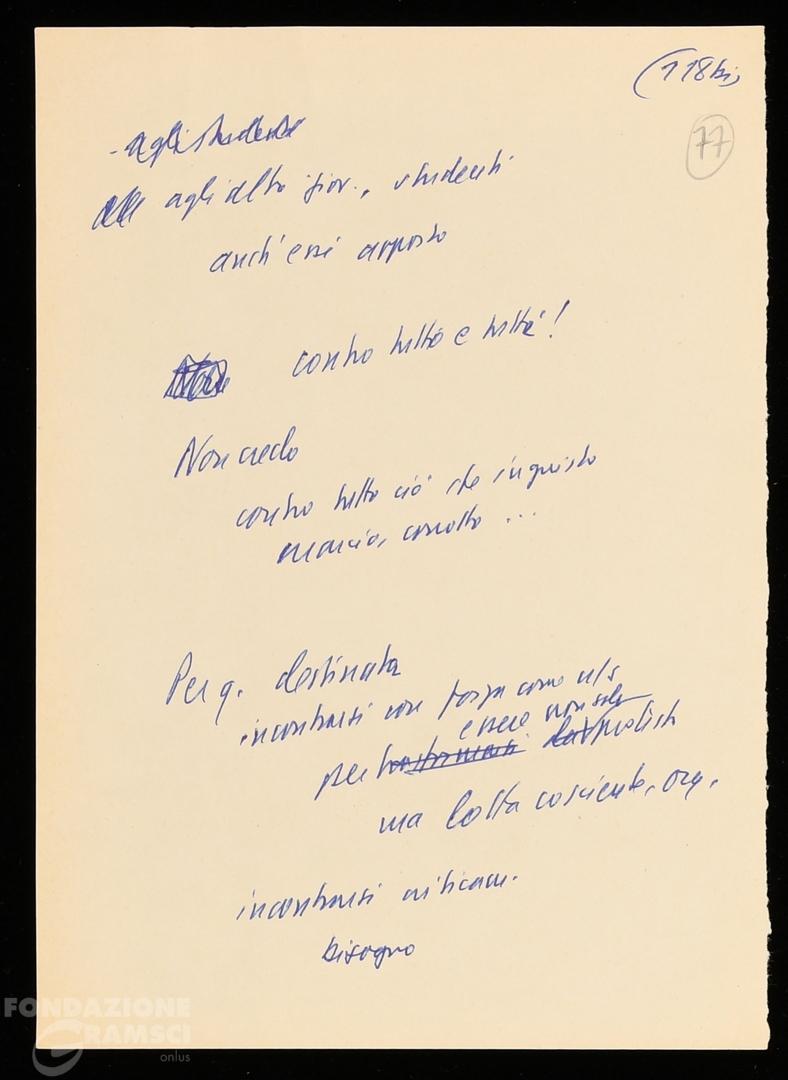 (118 bis
77
- agli studenti
agli altri giov., studenti
anch'essi apposto
contro tutto e tutti!
Non credo
contro tutto ciò che ingiusto
marcio, corrotto ...
Per q. destinata
incontrarsi con forza come n/s
essere non solo
per trasformarsi
ma lotta cosciente, org.
incontrarsi criticam.
bisogno
FONDAZIONE
GRAMSCI
onlus